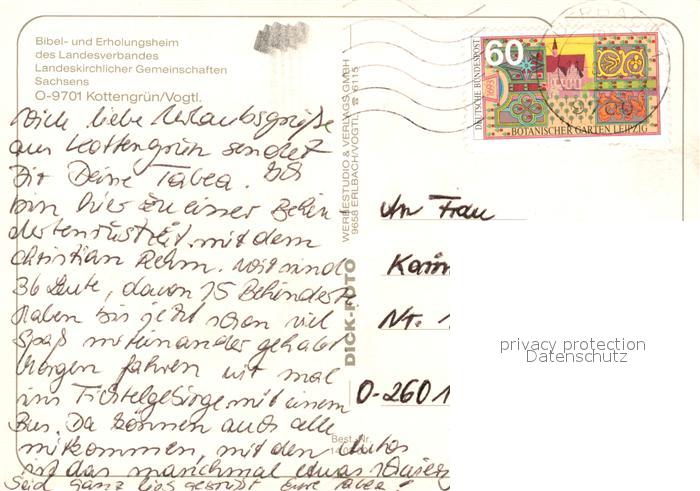 Bibel- und Erholungsheim
des Landesverbandes
Landeskirchlicher Gemeinschaften
Sachsens
O-9701 Kottengrün/Vogtl.
60
DEUTSCHE BUNDESPOST
BOTANISCHER GARTEN LEIPZIG
liebe Urlaubsgrüße
aus Kottengrün sendet
Dir Deine Tabea. Ich
bin hier zu einer Behin
dertenrüstzeit mit dem
Christian Rehm. Wir sind
36 Leute, davon 15 Behinderte
haben bis jetzt schon viel
Spaß miteinander gehabt
Morgen fahren wir mal
ins Fichtelgebirge mit einem
Bus. Da können auch alle
mitkommen, mit den Autos
ist das manchmal etwas
Seid ganz lieb gegrüßt Eure Tabea!
DICK-FOTO
WERBESTUDIO & VERLAGS GMBH
9658 ERLBACH/VOGTL. ☎ 6115
Best.-Nr.
An Frau
Karin
Nr. 1
O-2601
privacy protection
Datenschutz